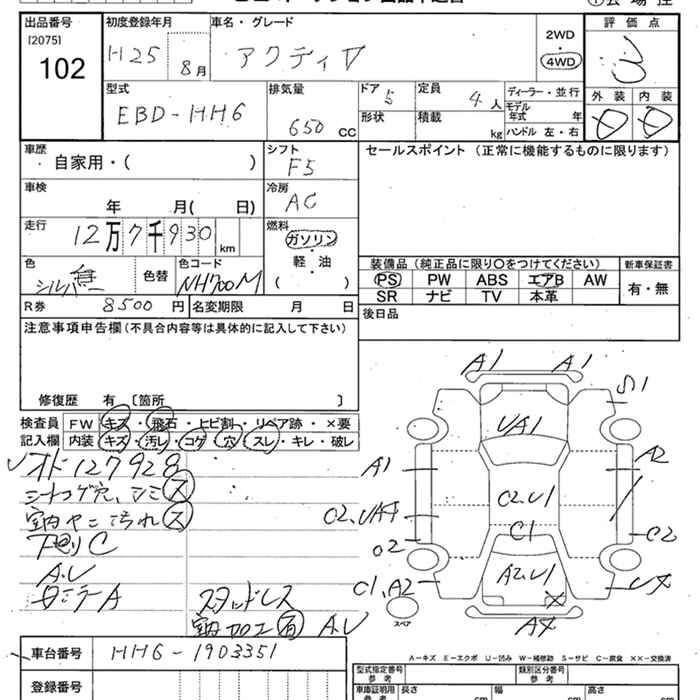 出品番号 初度登録年月 車名・グレード 評価点
[2075]
102 H25 8月 アクティV 2WD ・ 4WD
外装 内装
型式 排気量 ドア 定員 ディーラー・並行
EBD-HH6 650 CC 5 4人 モデル年式 年
形状 積載 kg ハンドル 左・右
車歴 シフト セールスポイント (正常に機能するものに限ります)
自家用・( ) F5
車検 冷房
年 月( 日) AC
走行 燃料
12万7千930 km ガソリン
・
軽・油
( )
色 色替 色コード 装備品 (純正品に限り○をつけてください) 新車保証書
シルバー NH700M PS PW ABS エアB AW 有・無
SR ナビ TV 本革
R券 8500円 名変期限 月 日 後日品
注意事項申告欄(不具合内容等は具体的に記入して下さい)
修復歴 有 〔箇所 〕
検査員 FW キズ・飛石・ヒビ割・リペア跡・×要
記入欄 内装 キズ・汚レ・コゲ・穴・スレ・キレ・破レ
✓オド127928
シートコゲ穴、シミ ス
室内ヤニ汚れ ス
下廻りC
A.U
スタッドレス
室内加工 有 A.U
A1 A1
S1
UA1
A1 A2
C2.U1
C1
C2
A2U1
C1,A2
スペア
車台番号 HH6-1903351
登録番号
A－キズ E－エクボ U－凹み W－補修跡 S－サビ C－腐食 ××－交換済
型式指定番号 参考 類別区分番号 参考
車庫証明用 参考 長さ cm 幅 cm 高さ cm